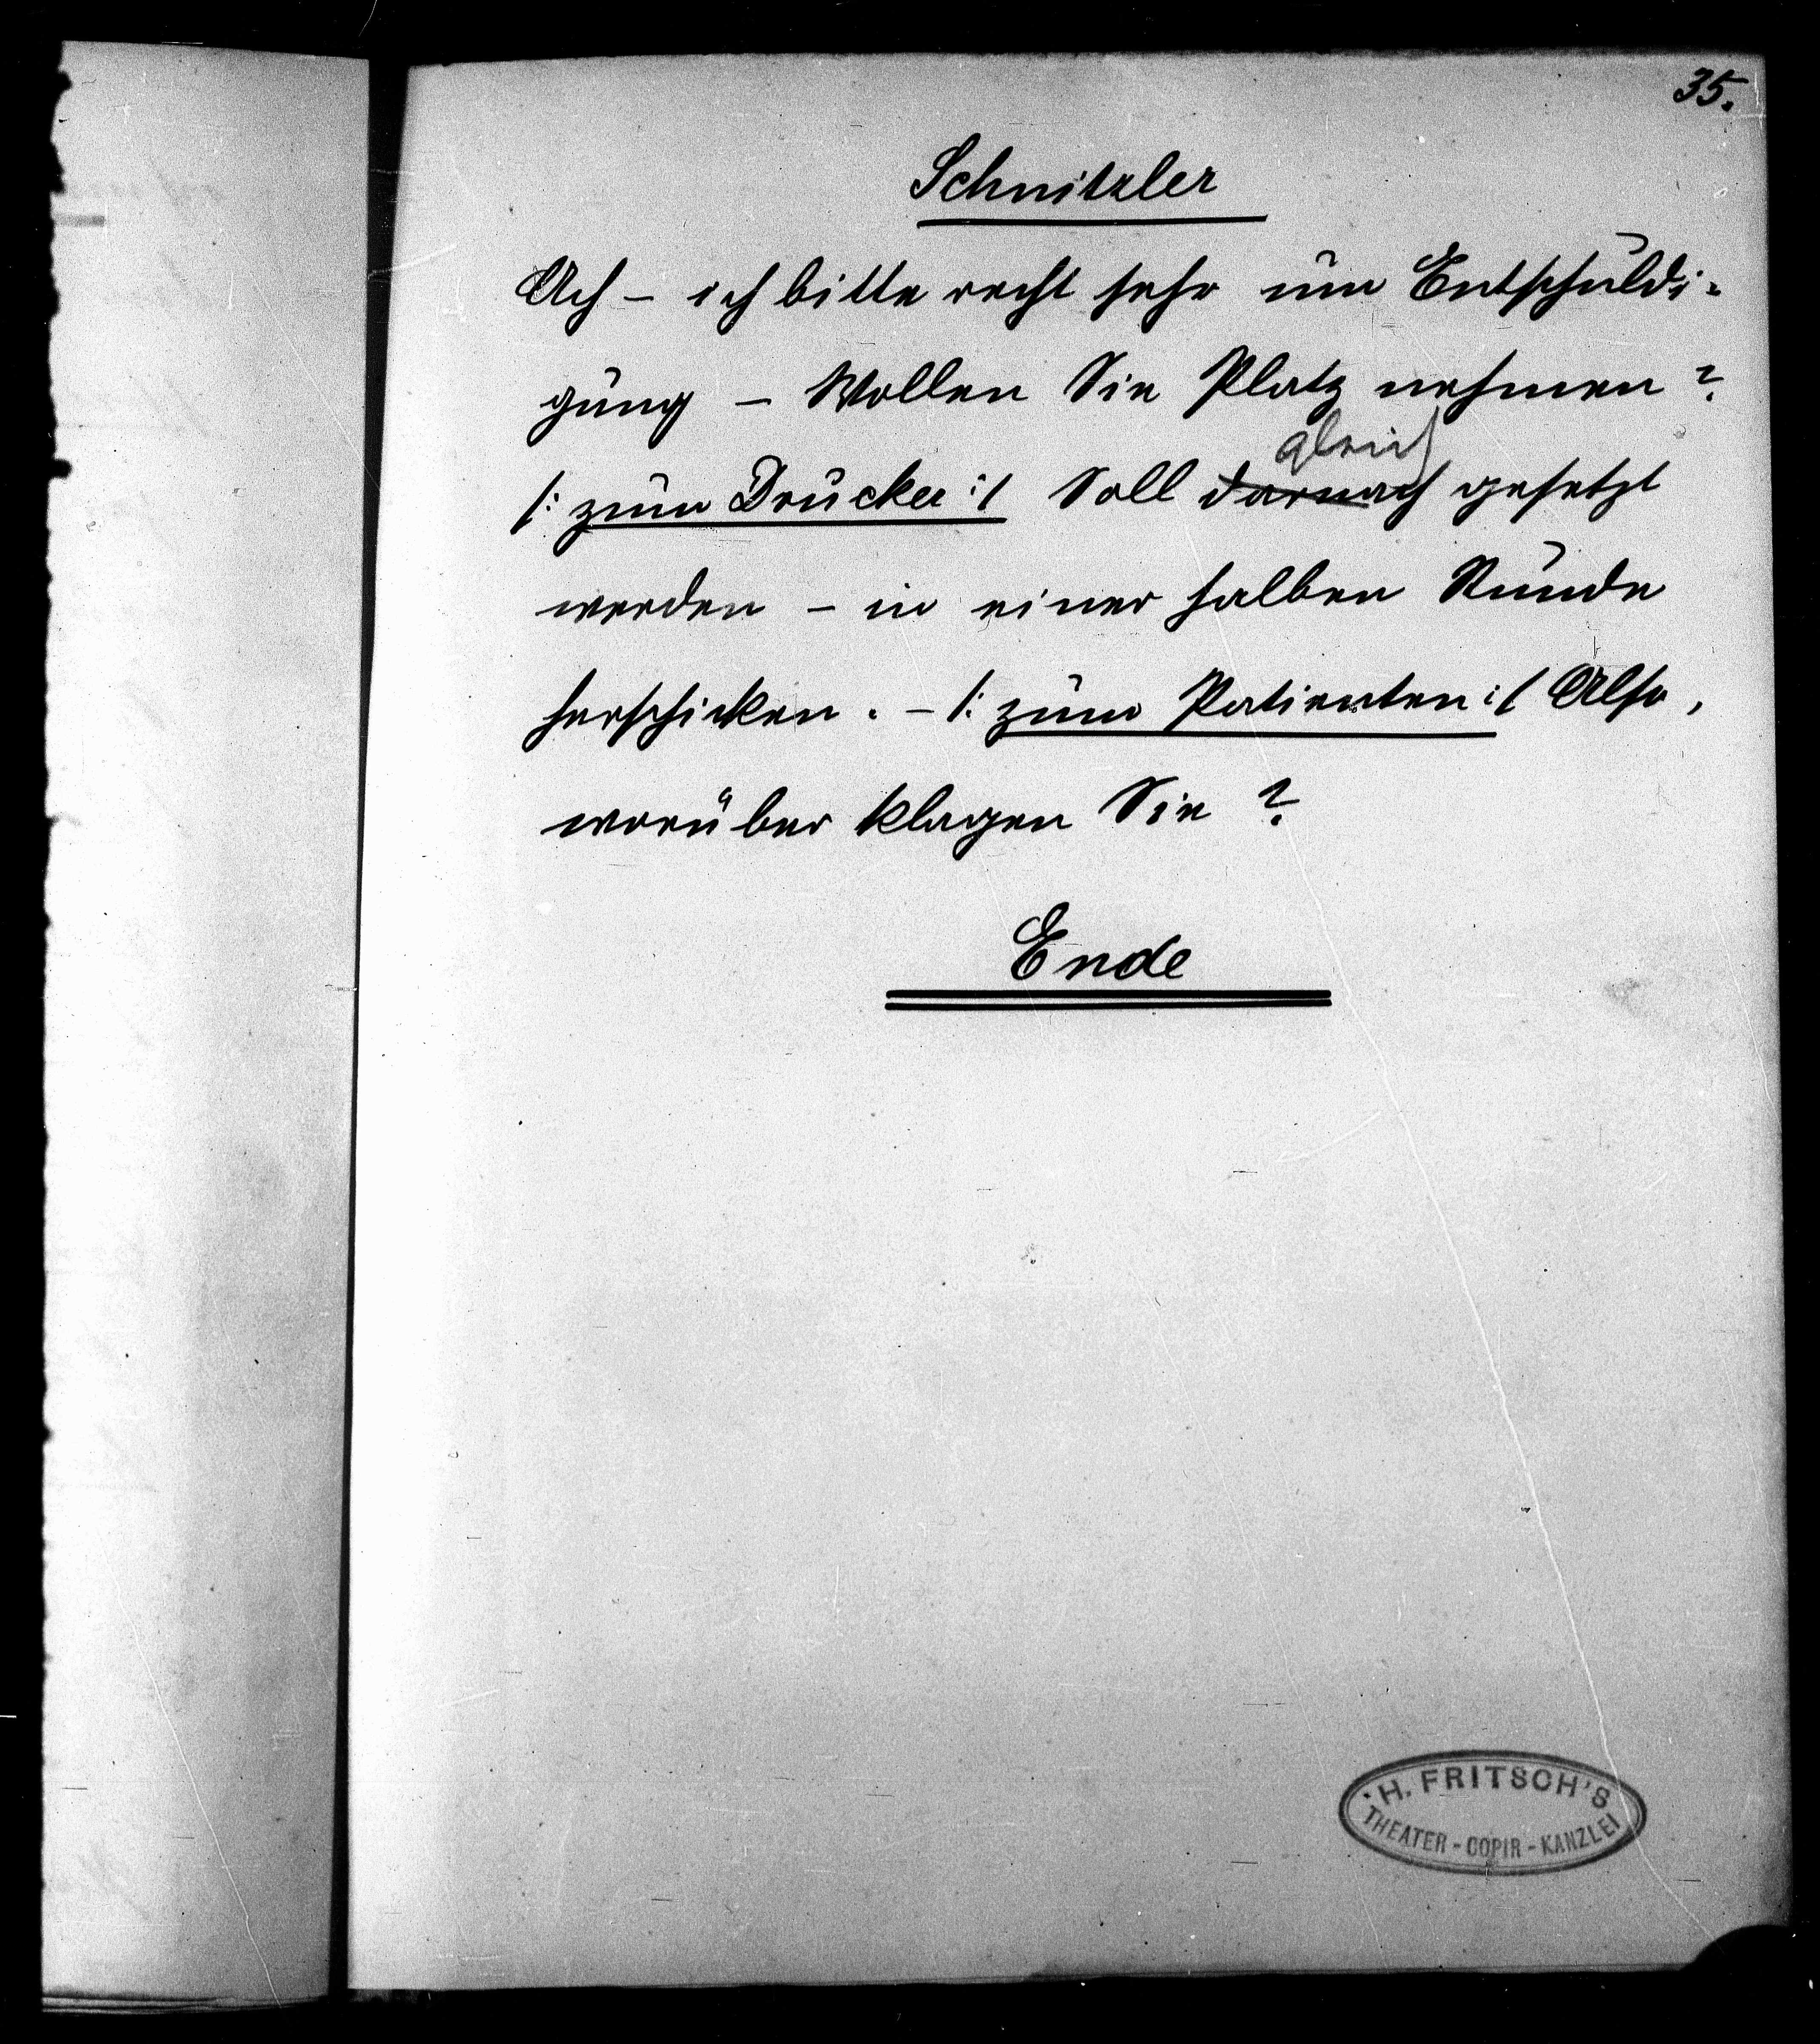 35.
Schnitzler
Ach – ich bitte recht sehr um Entschuldi-
gung – Wollen Sie Platz nehmen?
/: zum Drucker :/ Soll darnach gesetzt
gleich
werden – in einer halben Stunde
herschicken. – /: zum Patienten :/ Also,
worüber klagen Sie?
Ende
H. FRITSCH'S
THEATER-COPIR-KANZLEI